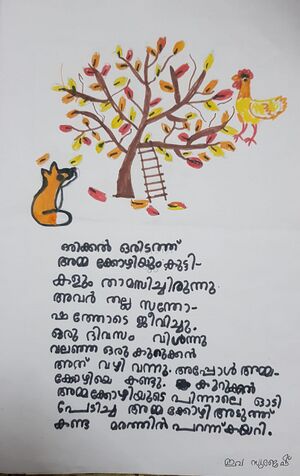 ഒരിക്കൽ ഒരിടത്ത്
അമ്മ ക്കോഴിയും കുട്ടി-
കളും താമസിച്ചിരുന്നു
അവർ നല്ല സന്തോ-
ഷത്തോടെ ജീവിച്ചു.
ഒരു ദിവസം വിശന്നു
വലഞ്ഞ ഒരു കുറുക്കൻ
അത് വഴി വന്നു. അപ്പോൾ അമ്മ-
ക്കോഴിയെ കണ്ടു. കുറുക്കൻ
അമ്മക്കോഴിയുടെ പിന്നാലെ ഓടി
പേടിച്ച അമ്മ ക്കോഴി അടുത്ത്
കണ്ട മരത്തിൽ പറന്ന് കയറി.